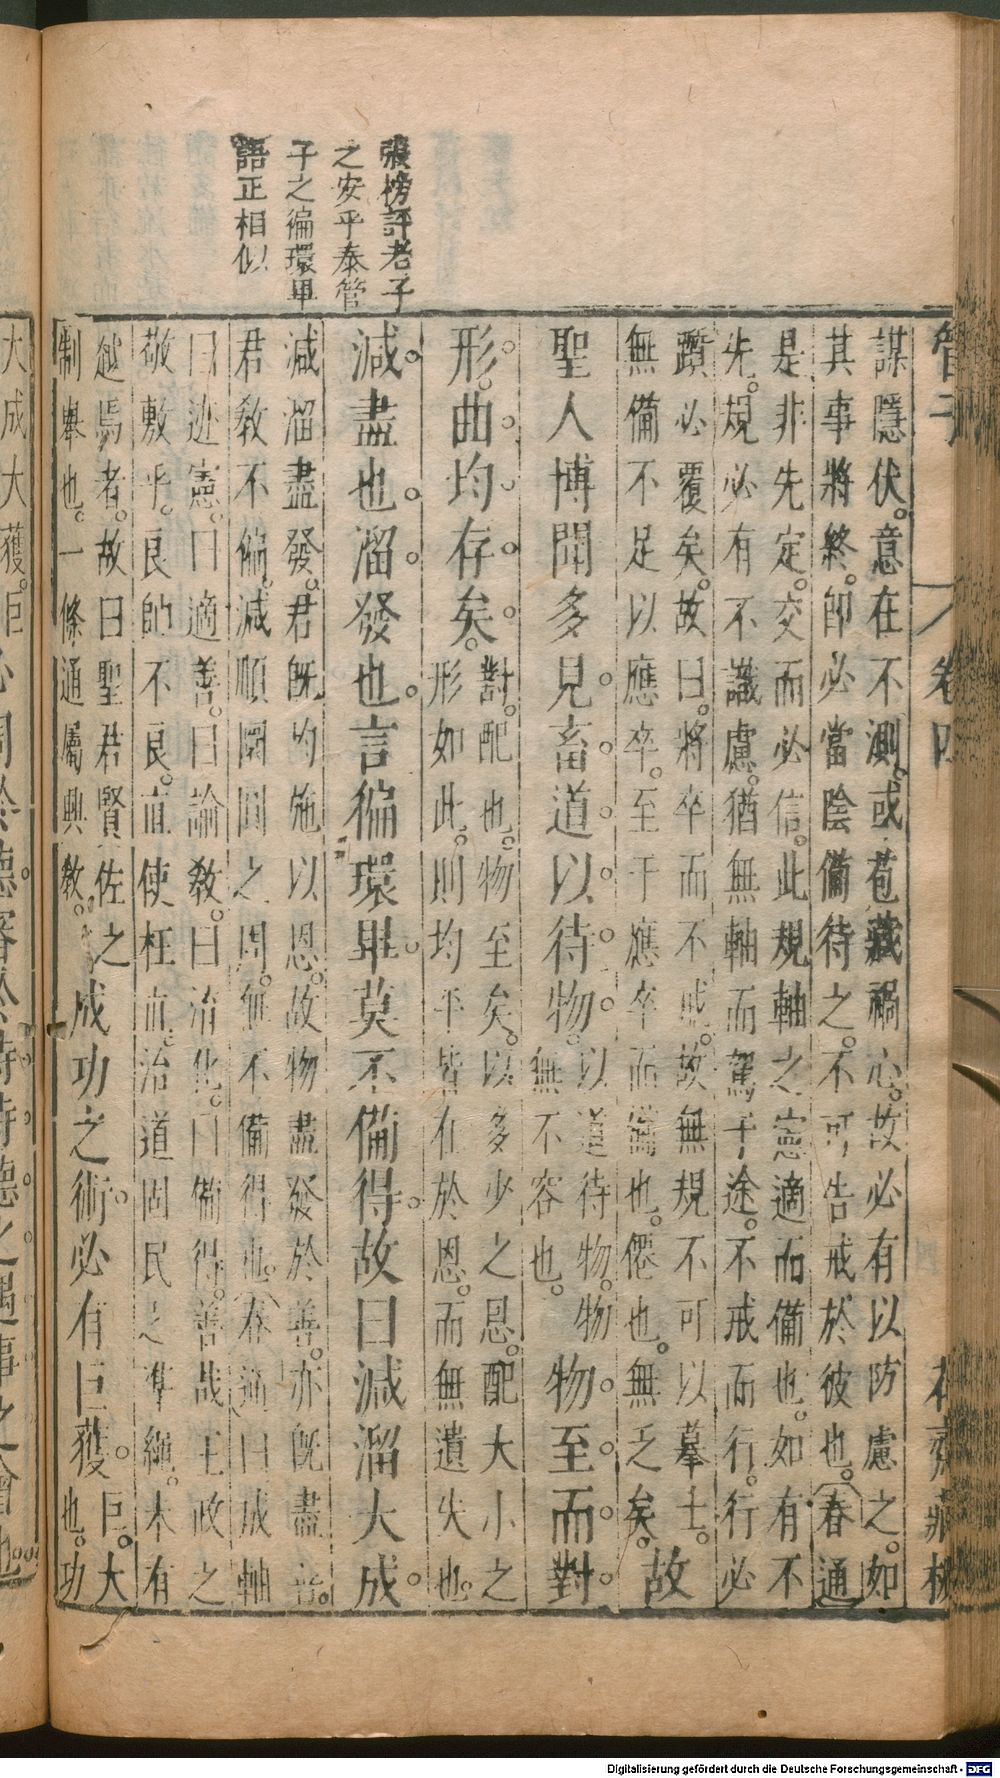 張榜評老子
之安乎泰管
子之徧環畢
語正相似
管子 卷四
謀隱伏。意在不測。或苞藏禍心。故必有以防慮之。如
其事將終。即必當陰備待之。不可告戒於彼也。春通
是非先定。交而必信。此規軸之憲適而備也。如有不
先。規必有不識慮。猶無軸而駕于途。不戒而行。行必
躓必覆矣。故曰。將卒而不戒。故無規不可以摹士。
無備不足以應卒。至于應卒而 也。僊也。無之矣。故
聖人博聞多見。畜道以待物。以道待物。物無不容也。物至而對
形。曲均存矣。對。配也。物至矣。以多少之恩。配大小之
形如此。則均平皆在於恩。而無遺失也。
減。盡也。溜。發也。言徧環畢莫不備得。故曰減溜大成
減溜盡發。君既均施以恩。故物盡發於善。亦既盡善。
君教不偏。減順圜周之周。無不備得也。春通曰成軸
曰迹憲。曰適善。曰論教。曰治化。曰備得。善哉王政之
敬敷乎。良帥不良。而使枉而。治道固民之準繩。木有
越焉者。故曰聖君賢佐之
制舉也。一條通屬興教。成功之術。必有巨獲。巨。大
也。功
大成大獲。巨必周於德審於時時德之遇事之會也。
Digitalisierung gefördert durch die Deutsche Forschungsgemeinschaft - DFG